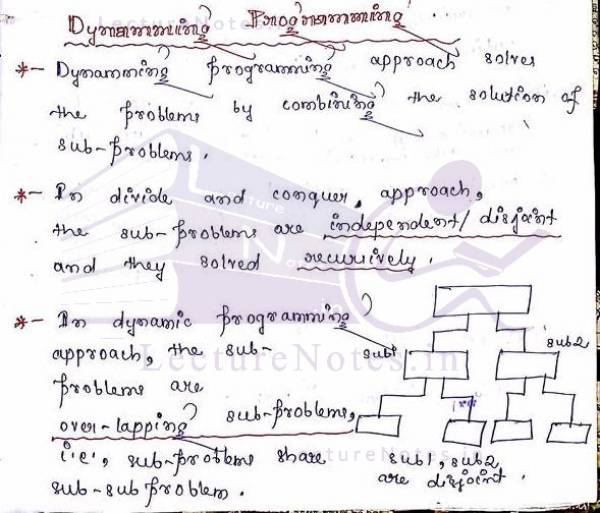 Dynammming Programmming
*- Dynamming programming approach solves
the problems by combining the solution of
sub-problems.
*- In divide and conquer, approach,
the sub-problems are independent/disjoint
and they solved recursively.
*- In dynamic programming
approach, the sub-
problems are
over-lapping sub-problems,
i.e., sub-problems share
sub-sub problem.
sub1
sub2
sub1, sub2
are disjoint.
LectureNotes.in
LectureNotes.in